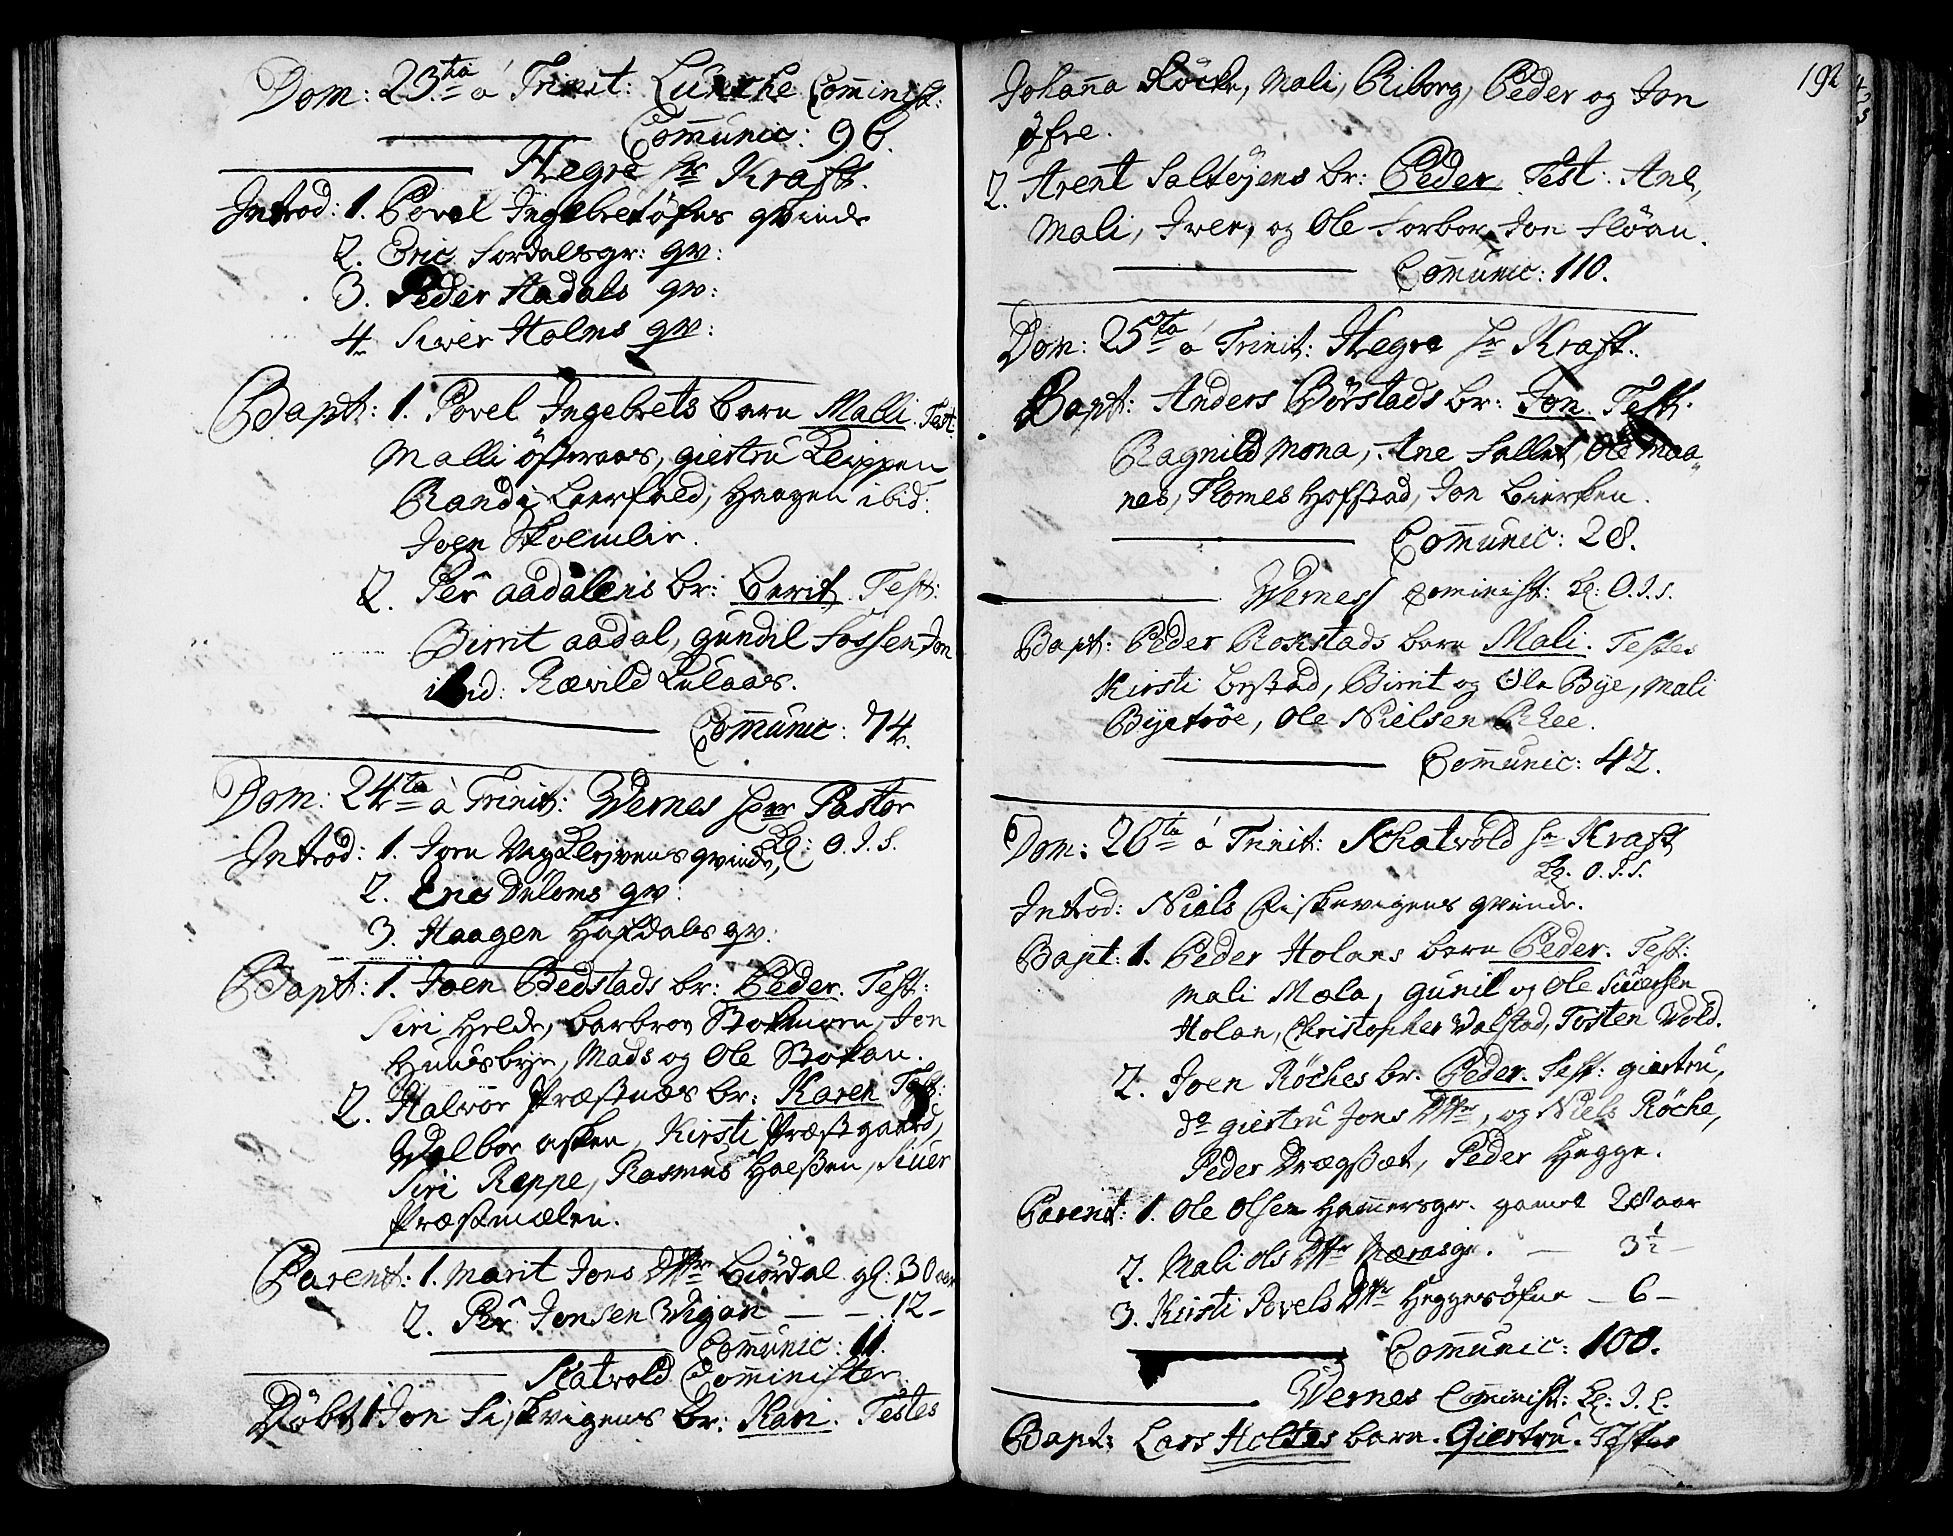 Dom: 23ta á Trinit: Lùncke Com̄inist:
Com̄unic: 96.
Hegre hr Kraft.
Introd: 1. Povel Ingebretsöfns qvinde
2. Eric Fordalsgr: qv:
3. Peder Aadals qv:
4. Siver Holms qv:
Bapt: 1. Povel Ingebrets barn Malli. Test:
Malli öfteraas, giertrù Kleppen
Randi Leerfald, Haagen ibid:
Joen Skoemlin.
2. Per aadalens br: Berit. Test:
Birrit aadal, gùndil Fossen, Jon
ibid: Rævild Lùlaas.
Com̄unic: 74.
Dom: 24ta á Trinit: Wernes Herr Pastor
Introd: 1. Joen Kleyvens qvinde, Kl: O. I. S.
2. Eric Dùloms qv:
3. Haagen Hofdals qv:
Bapt: 1. Joen Bedstads br: Peder. Test:
Siri Helde, barbroe Stokmoen, Jon
Hùùsbye, Mads og Ole Stokan.
2. Halvor Præstnæs br: Karen Test:
Walbor asken, Kirsti Præstgaard,
Siri Reppe, Rasmùs Halsen, Siver
Præstmælen.
Parent: 1. Marit Jons Dttr Biördal gl: 30 aar
2. Per Jonsen Wigan — — 12 —
Com̄unic: 11.
Skatvold Com̄inister.
Döbt 1 Jon Fiskvigens br: Kari. Testes
192
Johan̄a Röcke, Mali, Riborg, Peder og Jon
öfre.
2. Arent Saltöyens br: Peder Test: Ane,
Mali, Iver, og Ole Forbor, Jon Flöan.
Com̄unic: 110.
Dom: 25ta á Trinit: Hegre hr Kraft.
Bapt: Anders Börstads br: Jon. Test:
Ragnild Mona, Ane Sallet, Ole Maa-
nes, Thomes Hofstad, Jon Biercken.
Com̄unic: 28.
Werness Com̄inist: Kl: O. I. S.
Bapt: Peder Rokstads barn Mali. Testes
Kirsti bestad, Birrit og Ole Bye, Mali
Byetröe, Ole Nielsen Rhee.
Com̄unic: 42.
Dom: 26ta á Trinit: Schatvold hr Kraft
Kl. O. I. S.
Introd: Niels Fiskevigens qvinde.
Bapt: 1. Peder Holans barn Peder. Test:
Mali Mæla, gùnil og Ole Siversen
Holan, Christopher Walstad, Tosten Wold.
2. Joen Röckes br. Peder. Test: giertrù,
do giertrù Jons Dttr, og Niels Röcke,
Peder Drægset, Peder Hegge.
Parent: 1. Ole Olsen Ham̄ersgr. gamel 28 aar
2. Mali Ols Dttr Næresgr. — 3½ —
3. Kirsti Povels Dttr Heggesöfne — 6 —
Com̄unic: 100.
Wernes Com̄inist: Kl: I. L.
Bapt: Lars Holtes barn. Giertrù. Testes